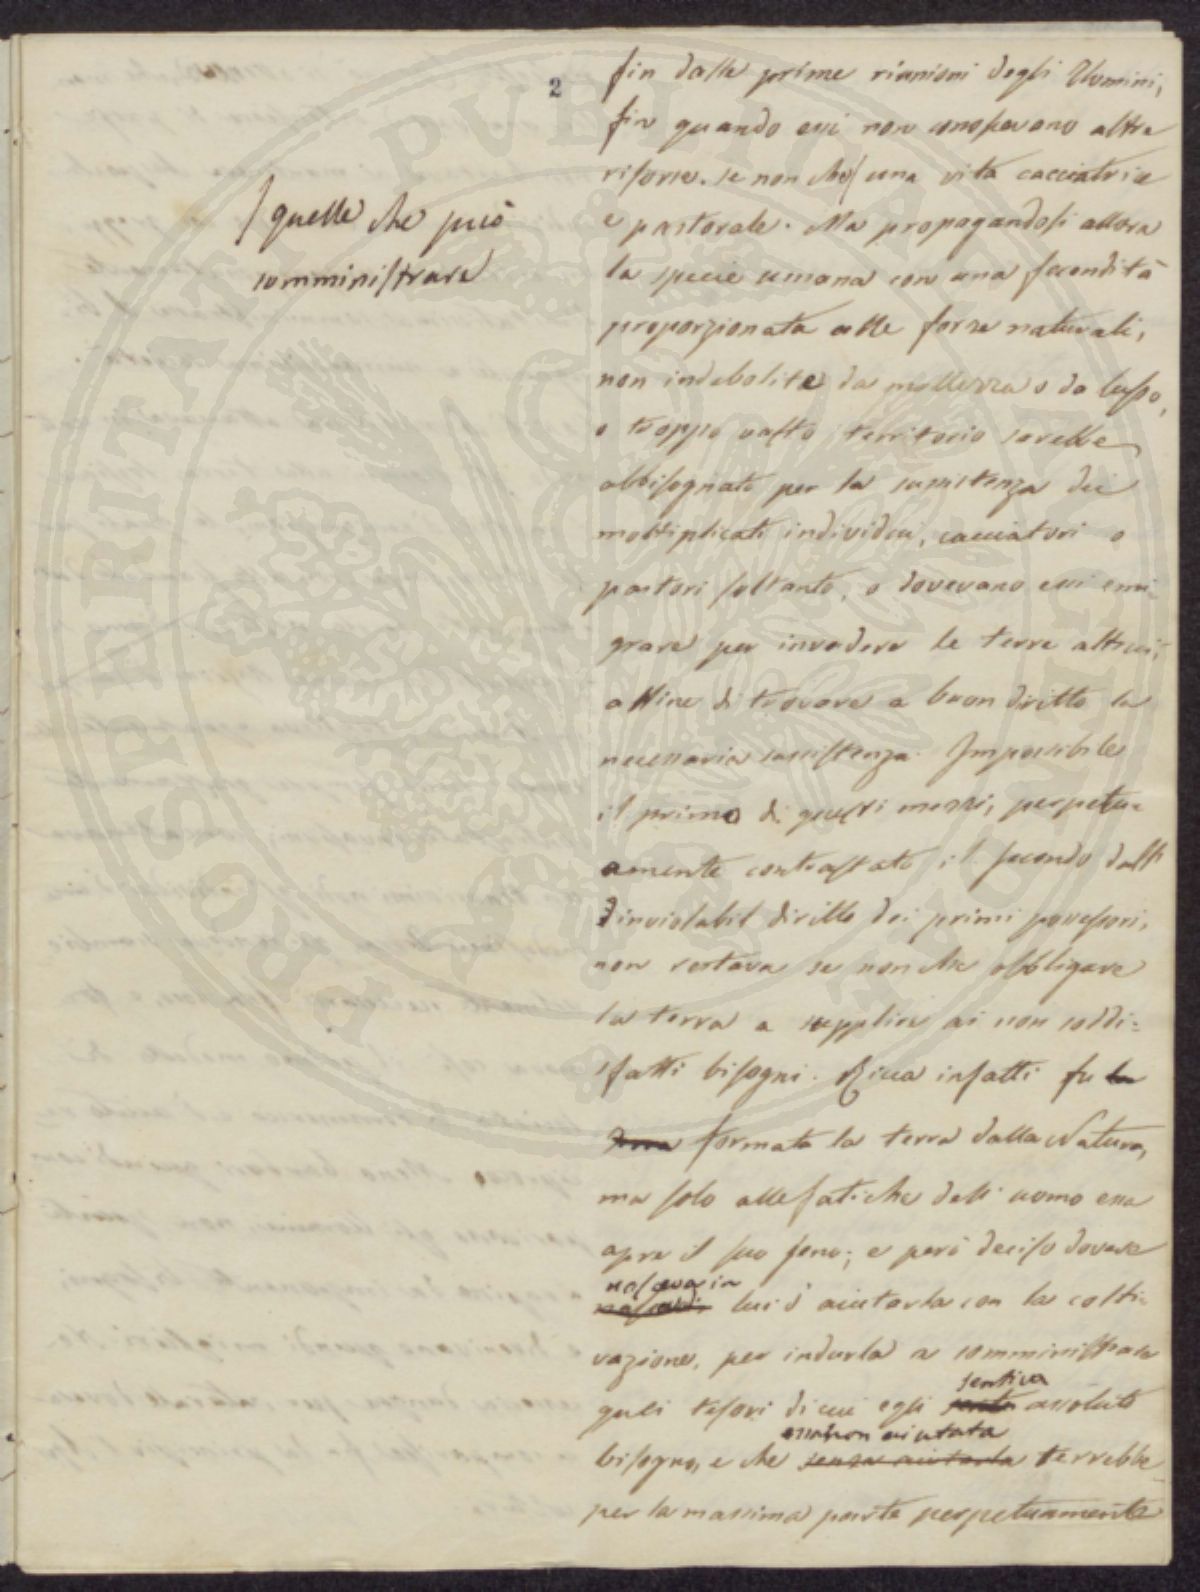 2
fin dalle prime riunioni degli Uomini,
fin quando essi non conoscevano altre
risorse. se non che una vita cacciatrice
e pastorale. Ma propagandosi allora
la specie umana con una fecondità
proporzionata alle forze naturali,
non indebolite da mollezza o da lusso,
o troppo vasto territorio sarebbe
abbisognato per la sussistenza dei
moltiplicati individui, cacciatori o
pastori soltanto, o dovevano essi emi-
grare per invadere le terre altrui,
affine di trovare a buon diritto la
necessaria sussistenza. Impossibile
il primo di questi mezzi, perpetu-
amente contrastato il secondo dall
inviolabil diritto dei primi possessori,
non restava se non che obbligare
la terra a supplire ai non soddi=
sfatti bisogni. Ricca infatti fu la
formata la terra dalla Natura,
ma solo alle fatiche dell uomo essa
apre il suo seno; e però deciso dovere
nasceva in
lui d'aiutarla con la colti=
vazione, per indurla a somministrare
quei tesori di cui egli assoluto
sentiva
bisogno, e che senza aiutarla terrebbe
essa non aiutata
per la massima parte perpetuamente
quelle che può
somministrare
PROSPERITATI PUBLICAE AUGENDAE